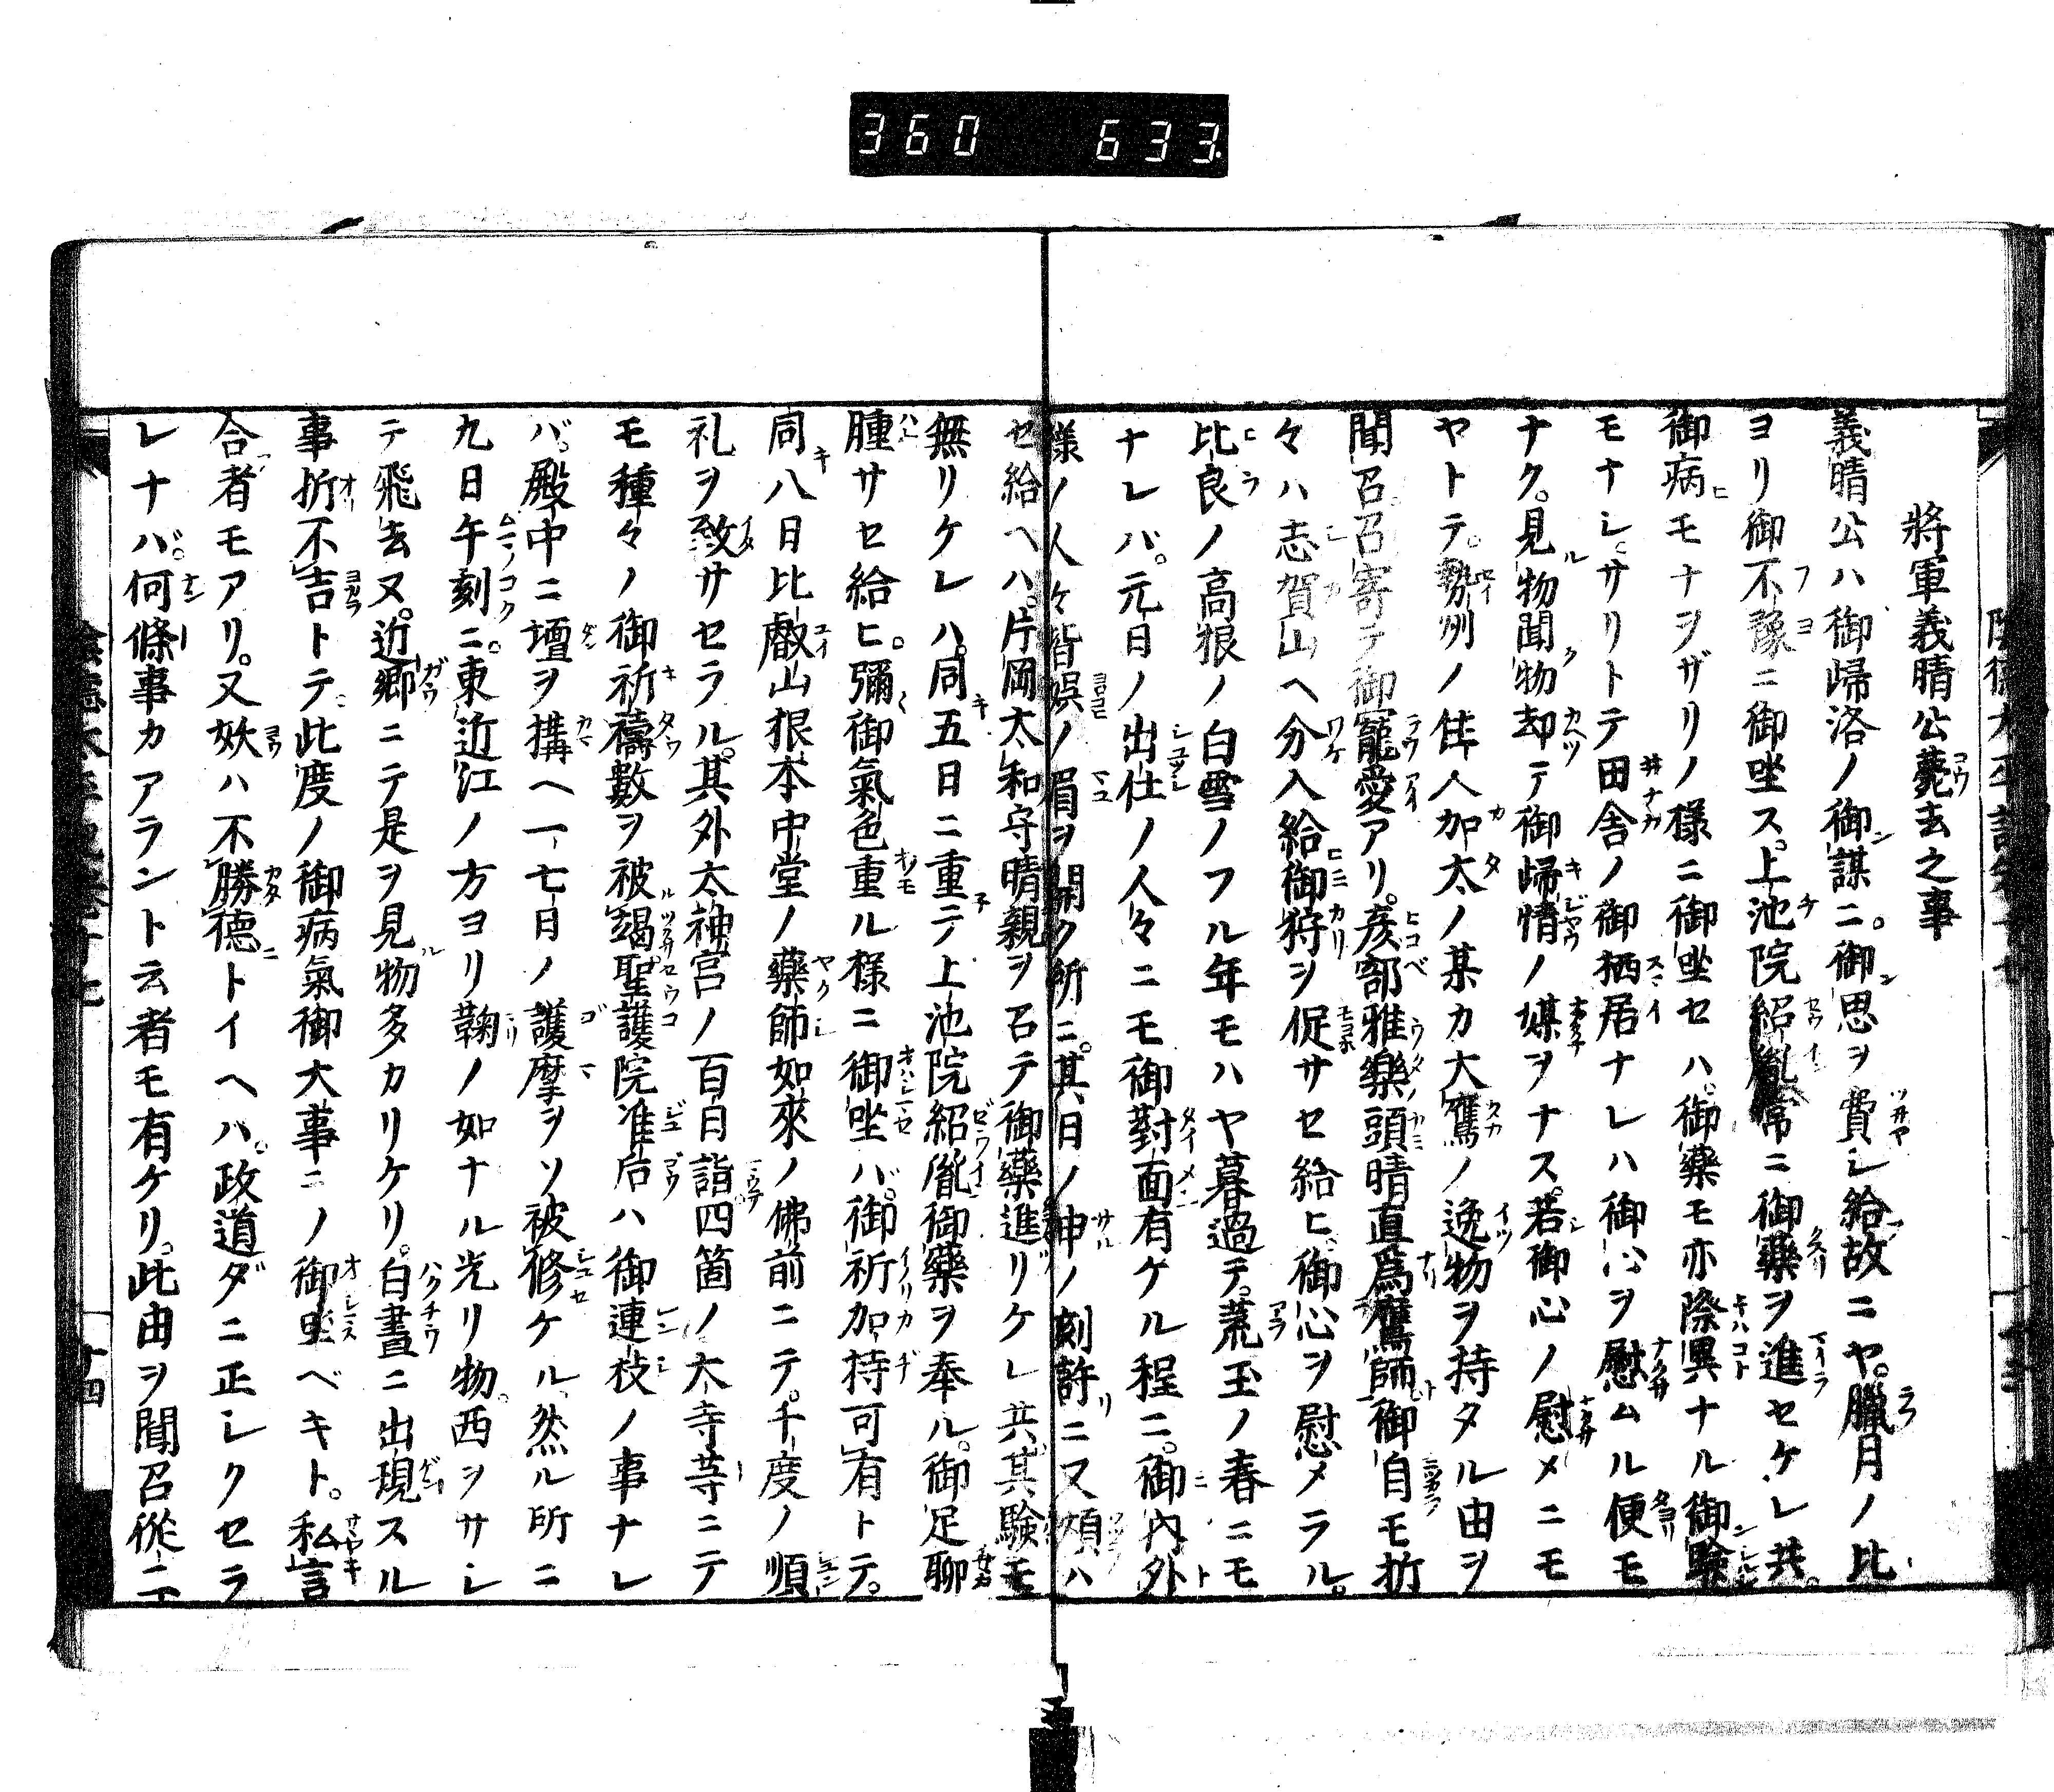 360 633
將軍義晴公薨去之事
義晴公ハ御歸洛ノ御謀ニ。御思ヲ費シ給故ニヤ。臘月ノ比
ヨリ御不豫ニ御坐ス。上池院紹胤常ニ御藥ヲ進セケレ共。
御病モナヲザリノ樣ニ御坐セハ。御藥モ亦際異ナル御驗
モナシ。サリトテ田舎ノ御栖居ナレハ御心ヲ慰ムル便モ
ナク。見物聞物却テ御歸情ノ媒ヲナス。若御心ノ慰メニモ
ヤトテ。勢州ノ住人加太ノ某カ大鷹ノ逸物ヲ持タル由ヲ
聞召召寄テ御寵愛アリ。彦部雅樂頭晴直爲鷹師御自モ折
々ハ志賀山ヘ分入給御狩ヲ促サセ給ヒ。御心ヲ慰メラル。
比良ノ高根ノ白雪ノフル年モハヤ暮過テ。荒玉ノ春ニモ
ナレバ。元日ノ出仕ノ人々ニモ御對面有ケル程ニ。御内外
樣ノ人々皆娯ノ眉ヲ開ク所ニ。其日ノ申ノ刻許ニ又煩ハ
セ給ヘハ。片岡大和守晴親ヲ召テ御藥進リケレ共其驗モ
無リケレハ。同五日ニ重テ上池院紹胤御藥ヲ奉ル。御足聊
腫サセ給ヒ。彌御氣色重ル樣ニ御坐バ。御祈加持可有トテ。
同八日比叡山根本中堂ノ藥師如來ノ佛前ニテ。千度ノ順
礼ヲ致サセラル。其外太神宮ノ百日詣四箇ノ大寺等ニテ
モ種々ノ御祈禱數ヲ被竭聖護院准后ハ御連枝ノ事ナレ
バ。殿中ニ壇ヲ搆ヘ一七日ノ護摩ヲソ被修ケル、然ル所ニ
九日午刻ニ。東近江ノ方ヨリ鞠ノ如ナル光リ物。西ヲサシ
テ飛去ヌ。近郷ニテ是ヲ見物多カリケリ。白晝ニ出現スル
事折不吉トテ。此度ノ御病氣御大事ニノ御坐ベキト。私言
合者モアリ。又妖ハ不勝德トイヘハ。政道ダニ正シクセラ
レナバ。何條事カアラント云者モ有ケリ。此由ヲ聞召從二